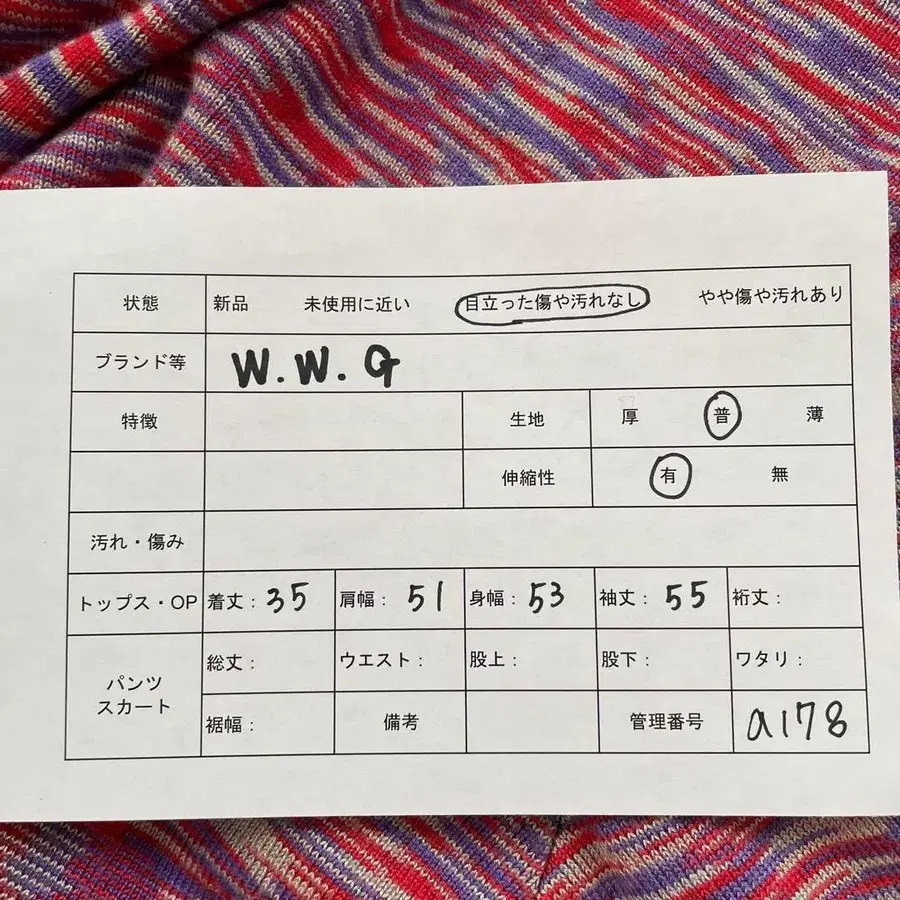 状態 新品 未使用に近い 目立った傷や汚れなし やや傷や汚れあり
ブランド等 W.W.G
特徴 生地 厚 普 薄
伸縮性 有 無
汚れ・傷み
トップス・OP 着丈: 35 肩幅: 51 身幅: 53 袖丈: 55 裄丈:
パンツ スカート 総丈: ウエスト: 股上: 股下: ワタリ:
裾幅: 備考 管理番号 a178